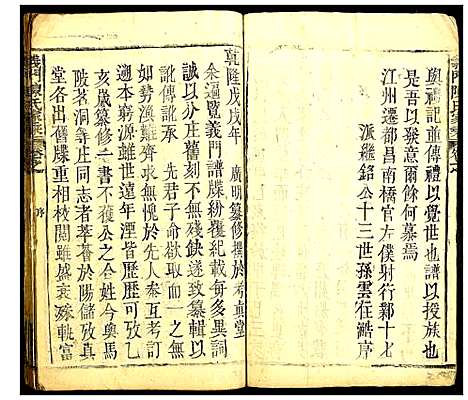 與禍記重傳禮以覺世也譜以授族也
吾以發意爾餘何慕焉
江州遷都昌南橋官左僕射行鄴十七
派繼銘公十三世孫雲在緒序
乾隆戊戌年 廣明纂修撰於考真堂
余遍覽義門譜牒紛覆紀載每多異詞
誠以分庄舊刻不無殘缺遂致纂輯以
訛傳訛承 先君子命欲取而一之無
如勢渙難齊求無愧於先人參互考訂
遡本窮源雖世遠年湮皆歷歷可
亥歲纂修 書不獲公之合姓今與馬
陂茗洞等庄同志者萃薈於陽儲攷真
堂各出舊牒重相校閱雖盛衰殊軌富
義門陳氏
序